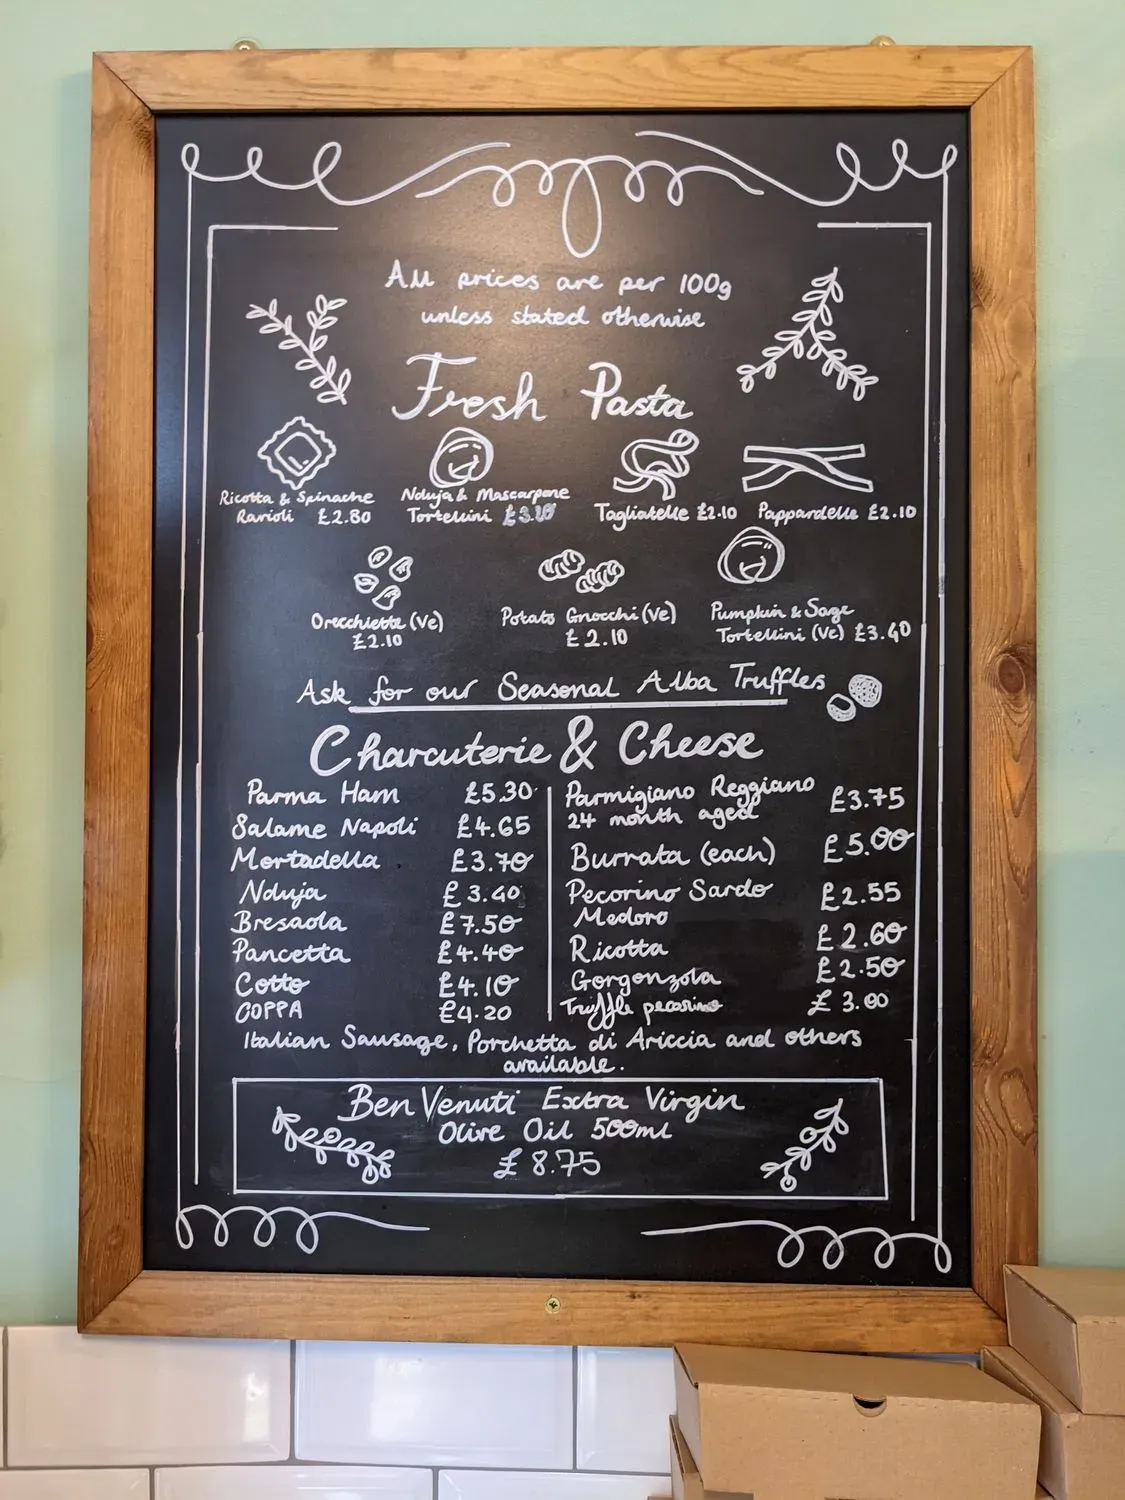 All prices are per 100g
unless stated otherwise
Fresh Pasta
Ricotta & Spinache
Ravioli £2.80
Nduja & Mascarpone
Tortellini
Tagliatelle £2.10
Pappardelle £2.10
Orecchiette (ve)
£2.10
Potato Gnocchi (ve)
£2.10
Pumpkin & Sage
Tortellini (ve) £3.40
Ask for our Seasonal Alba Truffles
Charcuterie & Cheese
Parma Ham £5.30
Salame Napoli £4.65
Mortadella £3.70
Nduja £3.40
Bresaola £7.50
Pancetta £4.40
Cotto £4.10
COPPA £4.20
Parmigiano Reggiano £3.75
24 month aged
Burrata (each) £5.00
Pecorino Sardo £2.55
Medoro
Ricotta £2.60
Gorgonzola £2.50
Truffle pecorino £3.00
Italian Sausage, Porchetta di Ariccia and others
available.
Ben Venuti Extra Virgin
Olive Oil 500ml
£8.75